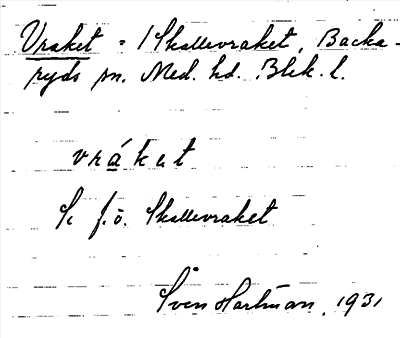 Vraket = /Skallevraket, Backa-
ryds sn. Med. hd. Blek. l.
vrákut
Se f. ö. Skallevraket
Sven Hartman, 1931